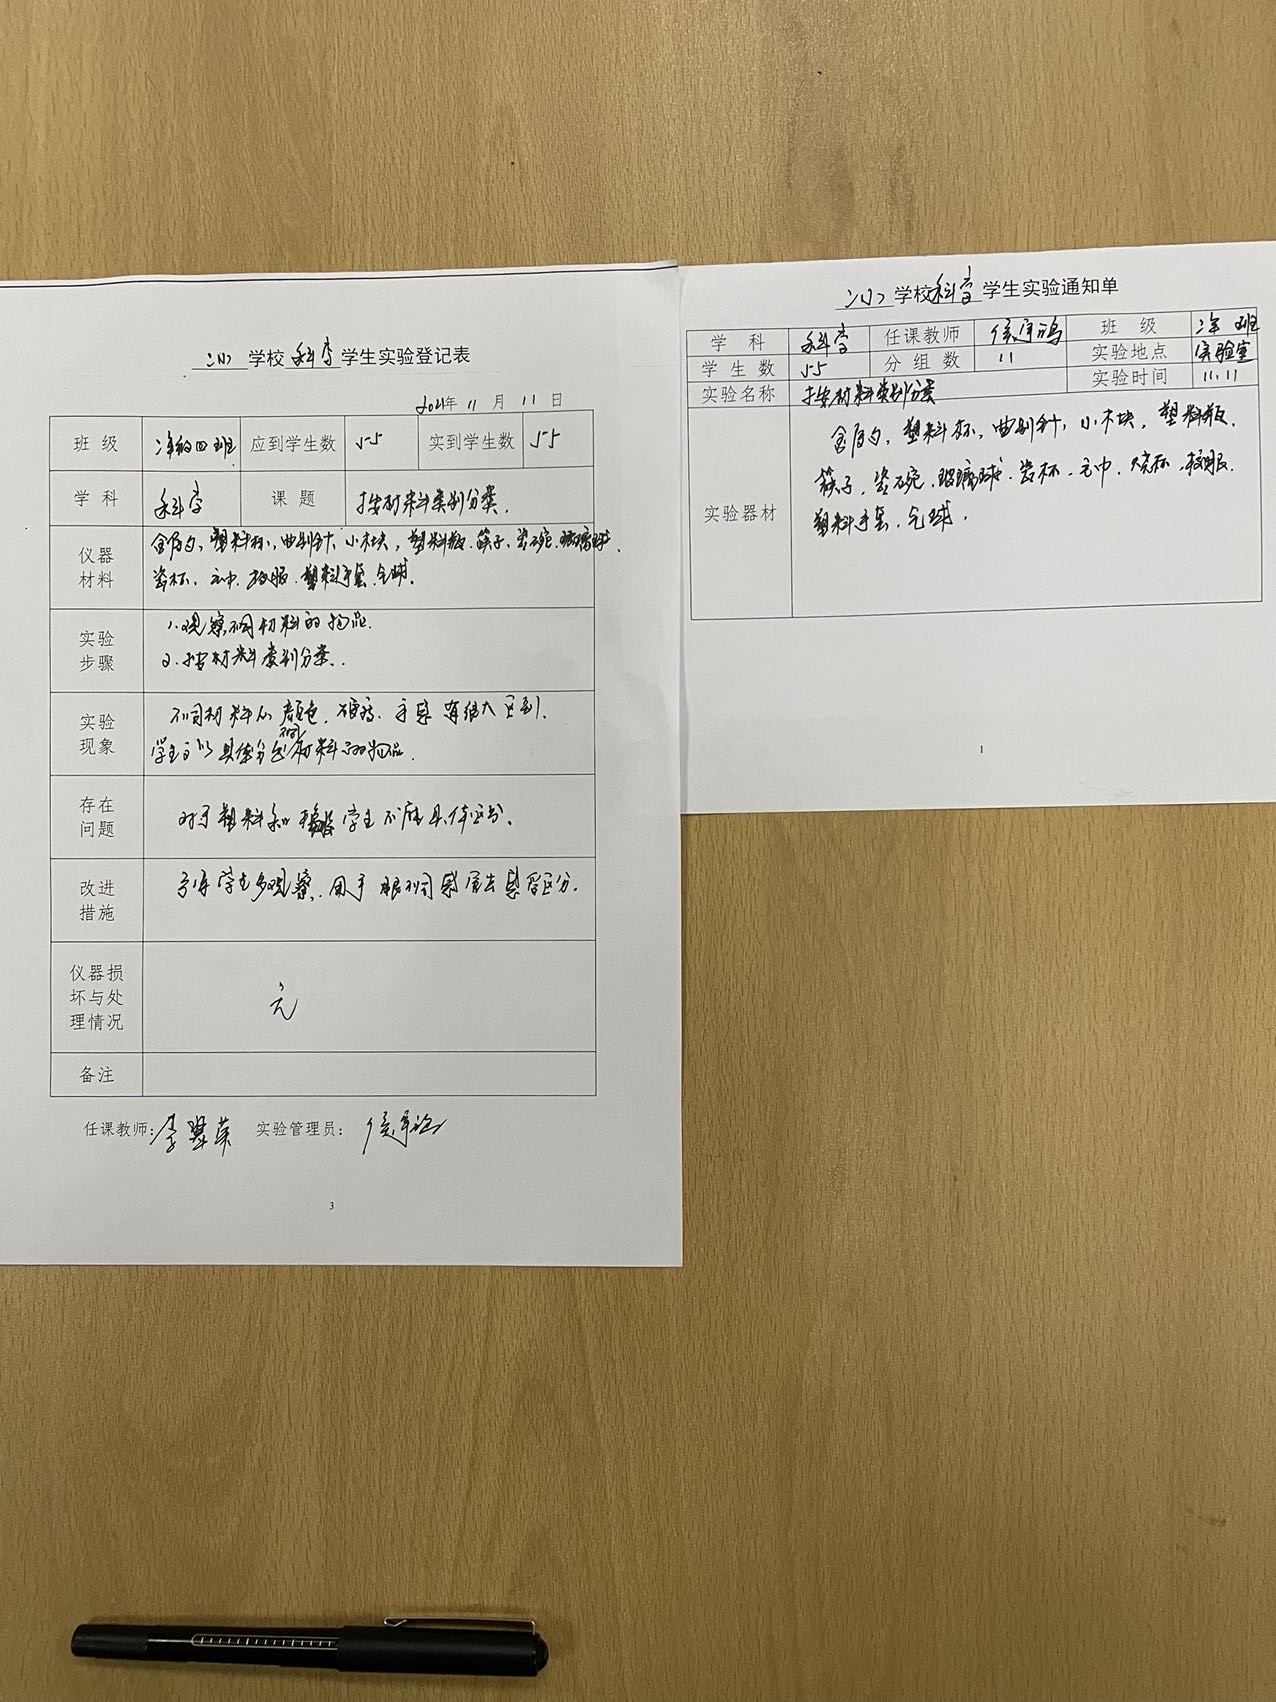 学校 科学 学生实验登记表
2021年 11 月 11 日
班级 四班 应到学生数 55 实到学生数 55
学科 科学 课题 按材料类别分类.
仪器材料 金属勺, 塑料杯, 曲别针, 小木块, 塑料瓶. 筷子, 瓷碗. 玻璃球.
瓷杯, 毛巾, 校服. 塑料手套. 气球.
实验步骤 1.观察不同材料的物品.
2.按材料类别分类.
实验现象 不同材料从颜色, 硬度, 手感有很大区别.
学生可以具体分出不同材料的物品.
存在问题 对于塑料和 学生不能具体区分.
改进措施 引导学生多观察, 用手 感受区分.
仪器损坏与处理情况 无
备注
任课教师: 实验管理员:
3
学校科学学生实验通知单
学科 科学 任课教师 班级 班
学生数 55 分组数 11 实验地点 实验室
实验名称 按材料类别分类 实验时间 11.11
实验器材 金属勺, 塑料杯, 曲别针, 小木块, 塑料瓶.
筷子, 瓷碗, 玻璃球, 瓷杯, 毛巾, 烧杯, 校服.
塑料手套, 气球.
1